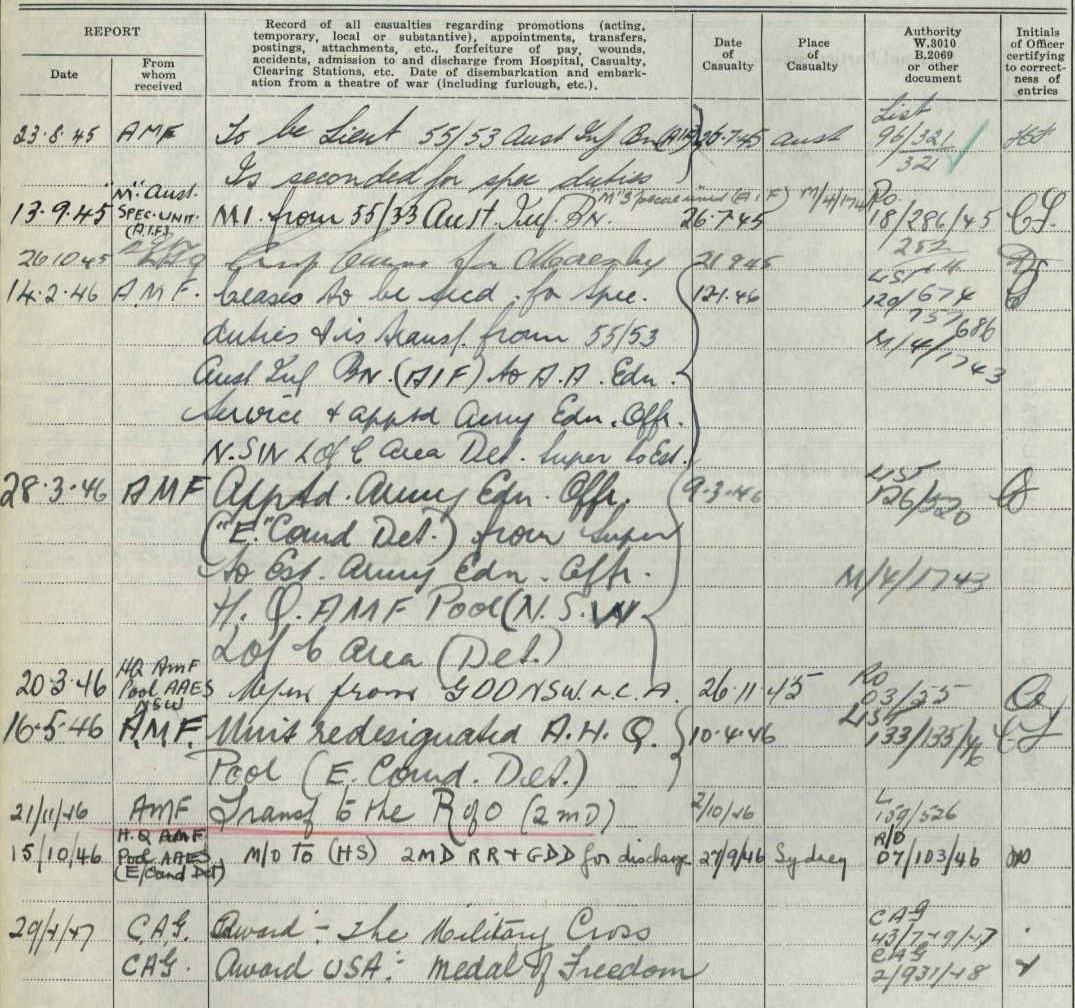 REPORT
Date
From whom received
Record of all casualties regarding promotions (acting,
temporary, local or substantive), appointments, transfers,
postings, attachments, etc., forfeiture of pay, wounds,
accidents, admission to and discharge from Hospital, Casualty,
Clearing Stations, etc. Date of disembarkation and embark-
ation from a theatre of war (including furlough, etc.).
Date of Casualty
Place of Casualty
Authority W.3010 B.2069 or other document
Initials of Officer certifying to correct- ness of entries
List
23·8·45 AMF To be Lieut 55/53 Aust Inf Bn (AIF) 26·7·45 Aust 96/321
321
Is seconded for spec duties
"M" Aust. "M" Special Unit (A.I.F) M/4/174 Ro
13·9·45 SPEC·UNIT· (A.I.F.) M.I. from 55/53 Aust. Inf. BN. 26·7·45 18/286/45
252
26 10 45 for 21 9 45
14·2·46 A.M.F. Ceases to be secd. for Spec. 12 1·46 120/674
duties & is transf. from 55/53 M/4/1743
Aust Inf BN. (AIF) to A.A. Edn.
Service & apptd Army Edn. Offr.
N.S.W L of C Area Det. Super to Est.
List
28·3·46 AMF Apptd. Army Edn. Offr. 9·3·46 126/520
("E." Comd Det.) from Super
to Est. Army Edn. Offr. M/4/1743
H.Q. AMF Pool (N.S.W
L of C Area (Det.)
20·3·46 HQ AMF Pool AAES NSW from GDD NSW L.C.A. 26·11·45 Ro 03/55
List
16·5·46 A.M.F. Unit redesignated A.H.Q. 10·4·46 133/135/46
Pool (E. Comd. Det.)
21/11/46 AMF Transf to the R of O (2 MD) 2/10/46 L 159/526
15/10/46 H.Q AMF Pool AAES (E/Comd Det) M/O TO (HS) 2MD RR & GDD for discharge 27/9/46 Sydney R/O 07/103/46
29/4/47 C.A.G. Award :- The Military Cross CAG
CAG. Award USA :- Medal of Freedom CAG